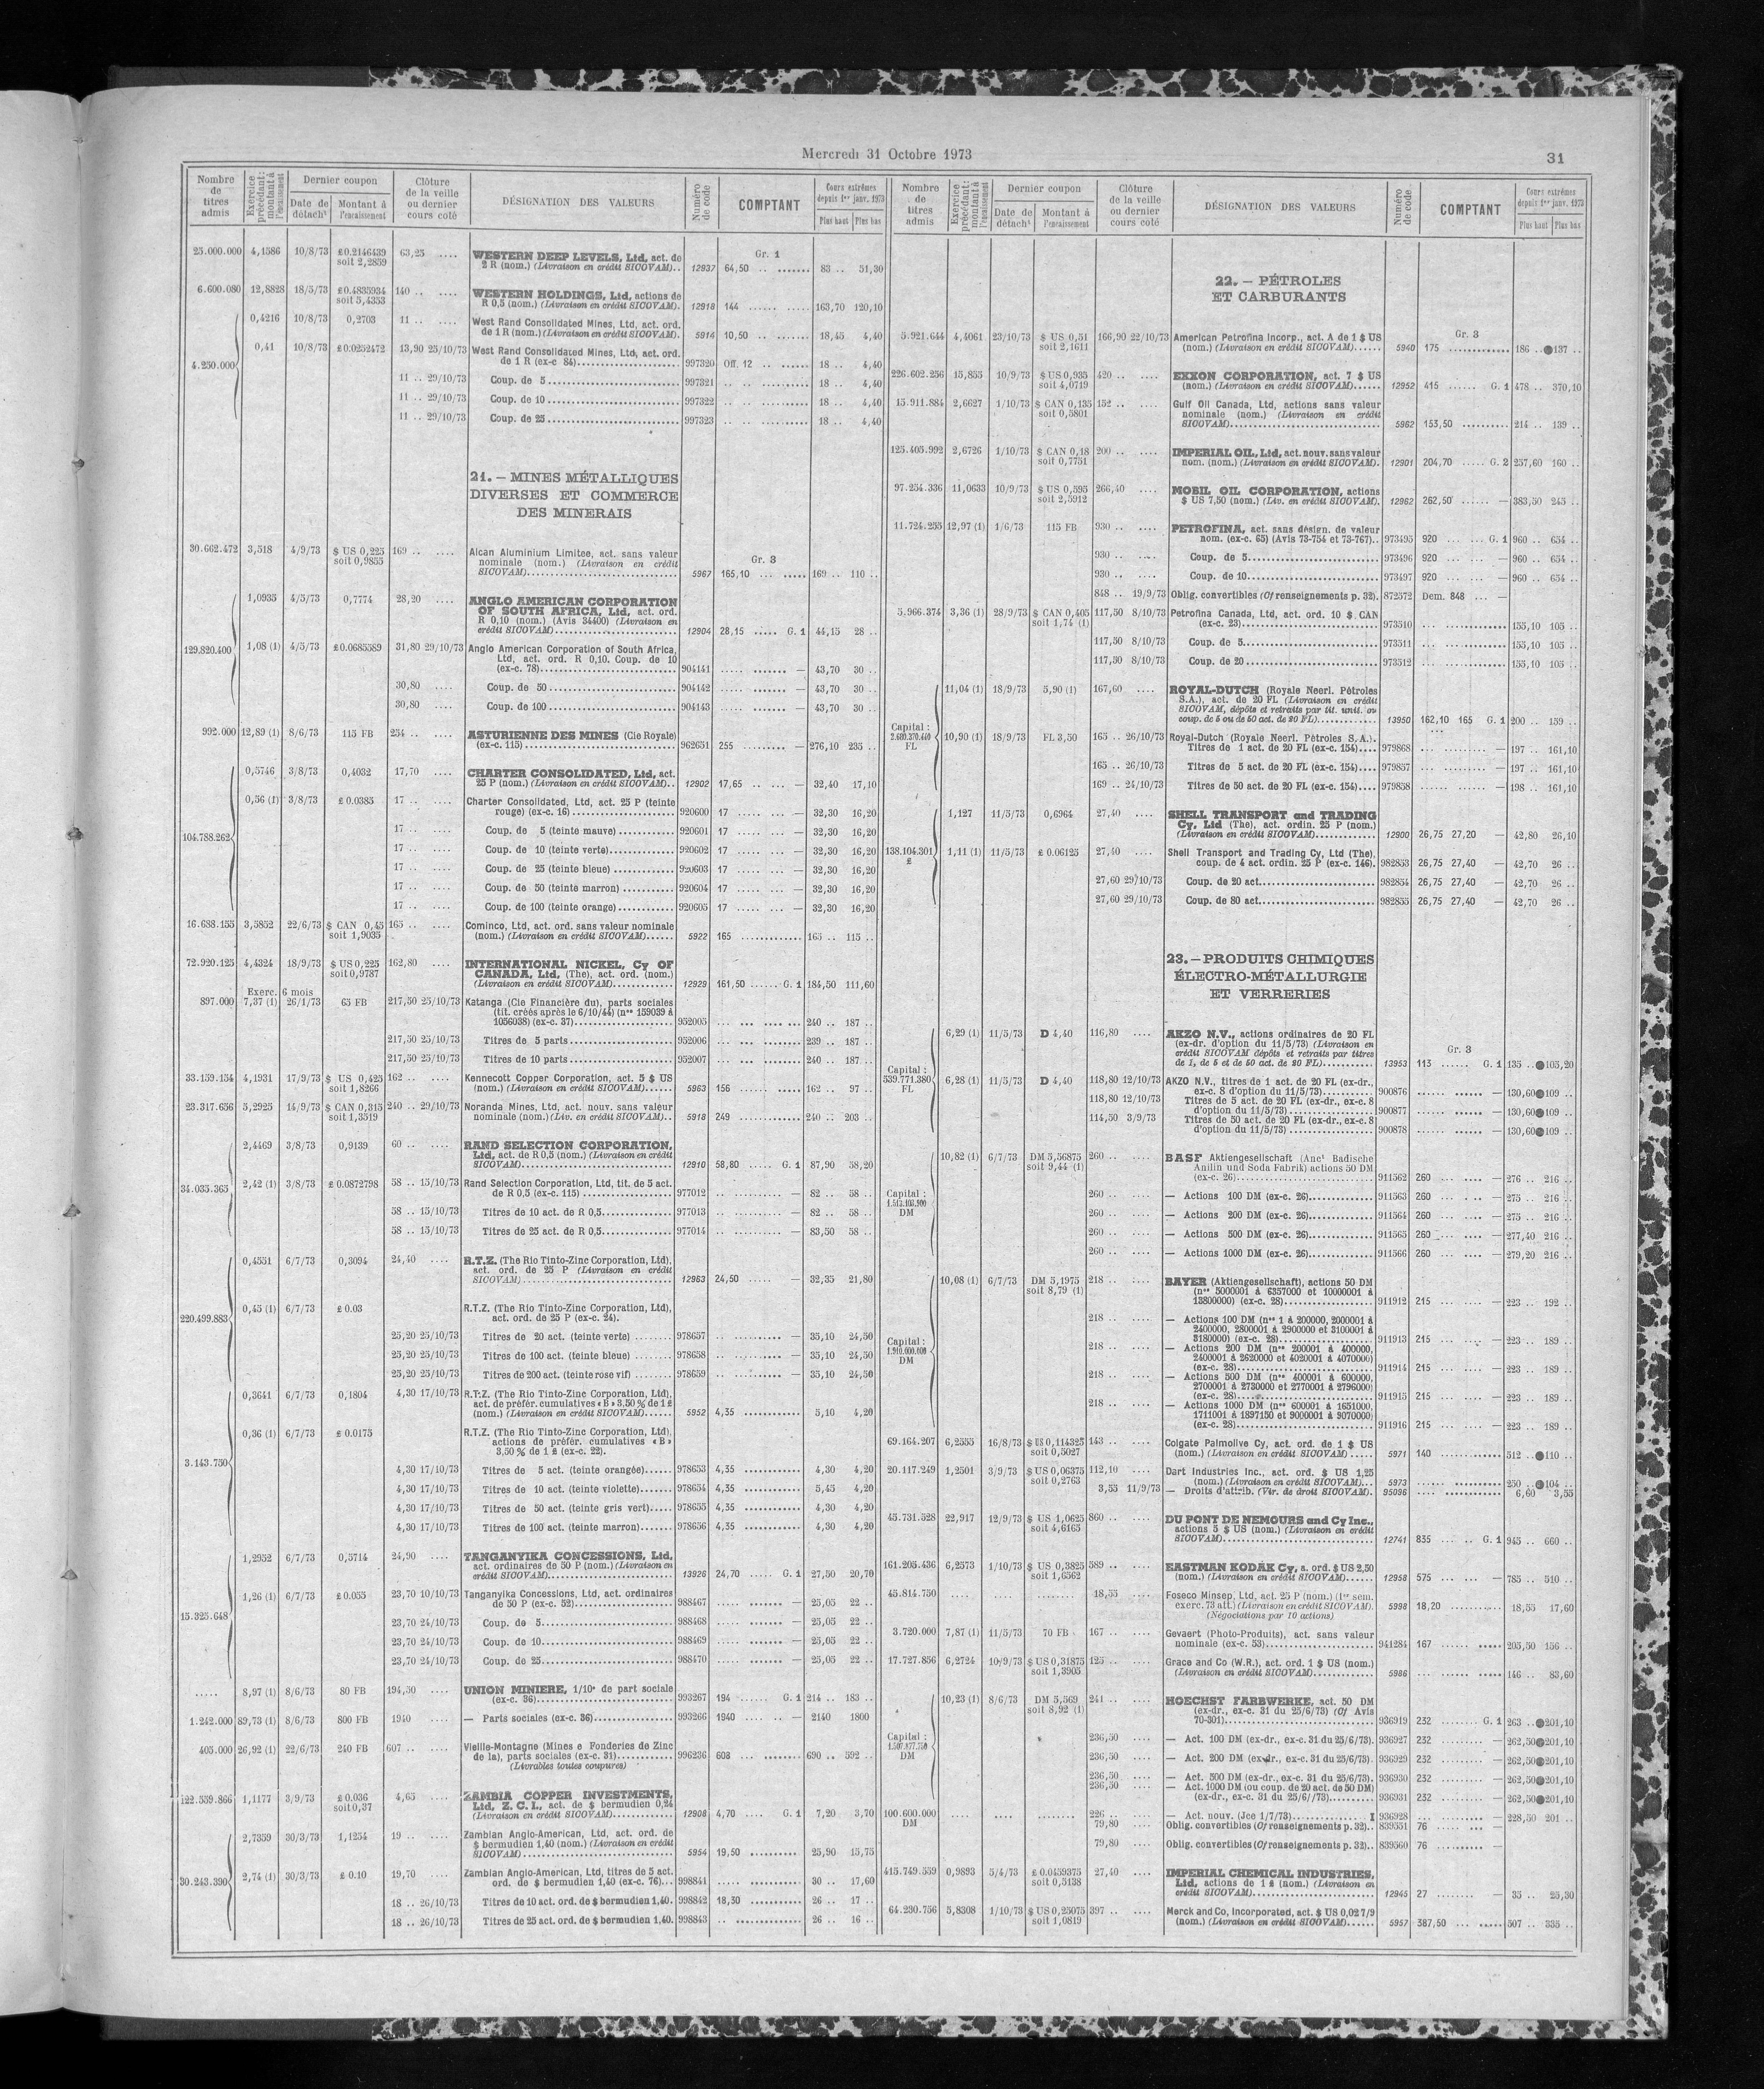 Mercredi 31 Octobre 1973
31
Nombre de titres admis | Exercice précédant : montant à l'encaissement | Dernier coupon | Date de détacht | Montant à l'encaissement | Clôture de la veille ou dernier cours coté | DÉSIGNATION DES VALEURS | Numéro de code | COMPTANT | Cours extrêmes depuis 1er janv. 1973 | Plus haut | Plus bas
Gr. 1
25.000.000 4,1586 10/8/73 £0.2146439 soit 2,2859 63,25 .... WESTERN DEEP LEVELS, Ltd, act. de
2 R (nom.) (Livraison en crédit SICOVAM).. 12937 64,50 .. ....... 83 .. 51,30
6.600.080 12,8828 18/5/73 £0.4835934 soit 5,4353 140 .. .... WESTERN HOLDINGS, Ltd, actions de
R 0,5 (nom.) (Livraison en crédit SICOVAM). 12918 144 ...... ..... 163,70 120,10
0,4216 10/8/73 0,2703 11 .. .... West Rand Consolidated Mines, Ltd, act. ord.
de 1 R (nom.) (Livraison en crédit SICOVAM). 5914 10,50 .. ....... 18,45 4,40
4.250.000 0,41 10/8/73 £0.0252472 13,90 25/10/73 West Rand Consolidated Mines, Ltd, act. ord.
de 1 R (ex-c 84) 997320 Off. 12 .. ...... 18 .. 4,40
11 .. 29/10/73 Coup. de 5 997321 18 .. 4,40
11 .. 29/10/73 Coup. de 10 997322 18 .. 4,40
11 .. 29/10/73 Coup. de 25 997323 18 .. 4,40
21. — MINES MÉTALLIQUES
DIVERSES ET COMMERCE
DES MINERAIS
Gr. 3
30.662.472 3,518 4/9/73 $ US 0,225 soit 0,9855 169 .. .... Alcan Aluminium Limitee, act. sans valeur
nominale (nom.) (Livraison en crédit
SICOVAM) 5967 165,10 ... ..... 169 .. 110 ..
1,0935 4/5/73 0,7774 28,20 .... ANGLO AMERICAN CORPORATION
OF SOUTH AFRICA, Ltd, act. ord.
R 0,10 (nom.) (Avis 34400) (Livraison en
crédit SICOVAM) 12904 28,15 ..... G. 1 44,15 28 ..
129.820.400 1,08 (1) 4/5/73 £0.0685589 31,80 29/10/73 Anglo American Corporation of South Africa,
Ltd, act. ord. R 0,10. Coup. de 10
(ex-c. 78) 904141 — 43,70 30 ..
30,80 .... Coup. de 50 904142 — 43,70 30 ..
30,80 .... Coup. de 100 904143 — 43,70 30 ..
992.000 12,89 (1) 8/6/73 115 FB 254 .. .... ASTURIENNE DES MINES (Cie Royale)
(ex-c. 115) 962651 255 ......... — 276,10 235 ..
0,5746 3/8/73 0,4032 17,70 .... CHARTER CONSOLIDATED, Ltd, act.
25 P (nom.) (Livraison en crédit SICOVAM).. 12902 17,65 .. ... — 32,40 17,10
104.788.262 0,56 (1) 3/8/73 £ 0.0385 17 .. .... Charter Consolidated, Ltd, act. 25 P (teinte
rouge) (ex-c. 16) 920600 17 ..... ... — 32,30 16,20
17 .. .... Coup. de 5 (teinte mauve) 920601 17 ..... ... — 32,30 16,20
17 .. .... Coup. de 10 (teinte verte) 920602 17 ..... ... — 32,30 16,20
17 .. .... Coup. de 25 (teinte bleue) 920603 17 ..... ... — 32,30 16,20
17 .. .... Coup. de 50 (teinte marron) 920604 17 ..... ... — 32,30 16,20
17 .. .... Coup. de 100 (teinte orange) 920605 17 ..... ... — 32,30 16,20
16.688.155 3,5852 22/6/73 $ CAN 0,45 soit 1,9035 165 .. .... Cominco, Ltd, act. ord. sans valeur nominale
(nom.) (Livraison en crédit SICOVAM) 5922 165 ............ 165 .. 115 ..
72.920.125 4,4324 18/9/73 $ US 0,225 soit 0,9787 162,80 .... INTERNATIONAL NICKEL, Cy OF
CANADA, Ltd, (The), act. ord. (nom.)
(Livraison en crédit SICOVAM) 12929 161,50 ...... G. 1 184,50 111,60
Exerc. 6 mois
897.000 7,37 (1) 26/1/73 65 FB 217,50 25/10/73 Katanga (Cie Financière du), parts sociales
(tit. créés après le 6/10/44) (nos 159039 à
1056038) (ex-c. 37) 952005 240 .. 187 ..
217,50 25/10/73 Titres de 5 parts 952006 239 .. 187 ..
217,50 25/10/73 Titres de 10 parts 952007 240 .. 187 ..
33.159.154 4,1931 17/9/73 $ US 0,425 soit 1,8266 162 .. .... Kennecott Copper Corporation, act. 5 $ US
(nom.) (Livraison en crédit SICOVAM) 5963 156 162 .. 97 ..
23.317.656 5,2925 14/9/73 $ CAN 0,315 soit 1,3519 240 .. 29/10/73 Noranda Mines, Ltd, act. nouv. sans valeur
nominale (nom.) (Liv. en crédit SICOVAM).. 5918 249 240 .. 203 ..
2,4469 3/8/73 0,9139 60 .. .... RAND SELECTION CORPORATION,
Ltd, act. de R 0,5 (nom.) (Livraison en crédit
SICOVAM) 12910 58,80 ..... G. 1 87,90 58,20
34.035.365 2,42 (1) 3/8/73 £ 0.0872798 58 .. 15/10/73 Rand Selection Corporation, Ltd, tit. de 5 act.
de R 0,5 (ex-c. 115) 977012 — 82 .. 58 ..
58 .. 15/10/73 Titres de 10 act. de R 0,5 977013 — 82 .. 58 ..
58 .. 15/10/73 Titres de 25 act. de R 0,5 977014 — 83,50 58 ..
0,4551 6/7/73 0,3094 24,40 .... R.T.Z. (The Rio Tinto-Zinc Corporation, Ltd),
act. ord. de 25 P (Livraison en crédit
SICOVAM) 12963 24,50 ..... — 32,35 21,80
220.499.883 0,45 (1) 6/7/73 £ 0.03 R.T.Z. (The Rio Tinto-Zinc Corporation, Ltd),
act. ord. de 25 P (ex-c. 24).
25,20 25/10/73 Titres de 20 act. (teinte verte) 978657 — 35,10 24,50
25,20 25/10/73 Titres de 100 act. (teinte bleue) 978658 — 35,10 24,50
25,20 25/10/73 Titres de 200 act. (teinte rose vif) 978659 — 35,10 24,50
0,3641 6/7/73 0,1804 4,30 17/10/73 R.T.Z. (The Rio Tinto-Zinc Corporation, Ltd),
act. de préfér. cumulatives « B » 3,50 % de 1 £
(nom.) (Livraison en crédit SICOVAM) 5952 4,35 5,10 4,20
3.143.750 0,36 (1) 6/7/73 £ 0.0175 R.T.Z. (The Rio Tinto-Zinc Corporation, Ltd),
actions de préfér. cumulatives « B »
3,50 % de 1 £ (ex-c. 22).
4,30 17/10/73 Titres de 5 act. (teinte orangée) 978653 4,35 4,30 4,20
4,30 17/10/73 Titres de 10 act. (teinte violette) 978654 4,35 5,45 4,20
4,30 17/10/73 Titres de 50 act. (teinte gris vert) 978655 4,35 4,30 4,20
4,30 17/10/73 Titres de 100 act. (teinte marron) 978656 4,35 4,30 4,20
1,2952 6/7/73 0,5714 24,90 .... TANGANYIKA CONCESSIONS, Ltd,
act. ordinaires de 50 P (nom.) (Livraison en
crédit SICOVAM) 13926 24,70 ..... G. 1 27,50 20,70
15.325.648 1,26 (1) 6/7/73 £ 0.055 23,70 10/10/73 Tanganyika Concessions, Ltd, act. ordinaires
de 50 P (ex-c. 52) 988467 — 25,05 22 ..
23,70 24/10/73 Coup. de 5 988468 — 25,05 22 ..
23,70 24/10/73 Coup. de 10 988469 — 25,05 22 ..
23,70 24/10/73 Coup. de 25 988470 — 25,05 22 ..
..... 8,97 (1) 8/6/73 80 FB 194,50 .... UNION MINIERE, 1/10e de part sociale
(ex-c. 36) 993267 194 ...... G. 1 214 .. 183 ..
1.242.000 89,73 (1) 8/6/73 800 FB 1940 .... — Parts sociales (ex-c. 36) 993266 1940 .... .. — 2140 1800
405.000 26,92 (1) 22/6/73 240 FB 607 .. .... Vieille-Montagne (Mines e Fonderies de Zinc
de la), parts sociales (ex-c. 31) 996236 608 690 .. 592 ..
(Livrables toutes coupures)
122.559.866 1,1177 3/9/73 £ 0.036 soit 0,37 4,65 .... ZAMBIA COPPER INVESTMENTS,
Ltd, Z. C. I., act. de $ bermudien 0,24
(Livraison en crédit SICOVAM) 12908 4,70 .... G. 1 7,20 3,70
2,7359 30/3/73 1,1254 19 .. .... Zambian Anglo-American, Ltd, act. ord. de
$ bermudien 1,40 (nom.) (Livraison en crédit
SICOVAM) 5954 19,50 25,90 15,75
30.243.390 2,74 (1) 30/3/73 £ 0.10 19,70 .... Zambian Anglo-American, Ltd, titres de 5 act.
ord. de $ bermudien 1,40 (ex-c. 76) 998841 30 .. 17,60
18 .. 26/10/73 Titres de 10 act. ord. de $ bermudien 1,40. 998842 18,30 26 .. 17 ..
18 .. 26/10/73 Titres de 25 act. ord. de $ bermudien 1,40. 998843 26 .. 16 ..
Nombre de titres admis | Exercice précédant : montant à l'encaissement | Dernier coupon | Date de détacht | Montant à l'encaissement | Clôture de la veille ou dernier cours coté | DÉSIGNATION DES VALEURS | Numéro de code | COMPTANT | Cours extrêmes depuis 1er janv. 1973 | Plus haut | Plus bas
22. — PÉTROLES
ET CARBURANTS
Gr. 3
5.921.644 4,4061 23/10/73 $ US 0,51 soit 2,1611 166,90 22/10/73 American Petrofina Incorp., act. A de 1 $ US
(nom.) (Livraison en crédit SICOVAM) 5940 175 186 ..●137 ..
226.602.256 15,855 10/9/73 $ US 0,935 soit 4,0719 420 .. .... EXXON CORPORATION, act. 7 $ US
(nom.) (Livraison en crédit SICOVAM) 12952 415 ...... G. 1 478 .. 370,10
15.911.884 2,6627 1/10/73 $ CAN 0,135 soit 0,5801 152 .. .... Gulf Oil Canada, Ltd, actions sans valeur
nominale (nom.) (Livraison en crédit
SICOVAM) 5962 153,50 214 .. 139 ..
125.405.992 2,6726 1/10/73 $ CAN 0,18 soit 0,7751 200 .. .... IMPERIAL OIL, Ltd, act. nouv. sans valeur
nom. (nom.) (Livraison en crédit SICOVAM). 12901 204,70 ..... G. 2 257,60 160 ..
97.254.336 11,0633 10/9/73 $ US 0,595 soit 2,5912 266,40 .... MOBIL OIL CORPORATION, actions
$ US 7,50 (nom.) (Liv. en crédit SICOVAM). 12962 262,50 ...... — 383,50 245 ..
11.724.255 12,97 (1) 1/6/73 115 FB 930 .. .... PETROFINA, act. sans désign. de valeur
nom. (ex-c. 65) (Avis 73-754 et 73-767).. 973495 920 ... ... G. 1 960 .. 654 ..
930 .. .... Coup. de 5 973496 920 — 960 .. 654 ..
930 .. .... Coup. de 10 973497 920 — 960 .. 654 ..
848 .. 19/9/73 Oblig. convertibles (Cf renseignements p. 32). 872572 Dem. 848 ... —
5.966.374 3,36 (1) 28/9/73 $ CAN 0,405 soit 1,74 (1) 117,50 8/10/73 Petrofina Canada, Ltd, act. ord. 10 $ CAN
(ex-c. 23) 973510 155,10 105 ..
117,50 8/10/73 Coup. de 5 973511 155,10 105 ..
117,50 8/10/73 Coup. de 20 973512 155,10 105 ..
11,04 (1) 18/9/73 5,90 (1) 167,60 ROYAL-DUTCH (Royale Neerl. Pétroles
S.A.), act. de 20 FL (Livraison en crédit
SICOVAM, dépôts et retraits par tit. unit. ou
coup. de 5 ou de 50 act. de 20 FL) 13950 162,10 165 G. 1 200 .. 159 ..
Capital : 2.680.370.440 FL 10,90 (1) 18/9/73 FL 3,50 165 .. 26/10/73 Royal-Dutch (Royale Neerl. Pétroles S.A.).
Titres de 1 act. de 20 FL (ex-c. 154) 979868 — 197 .. 161,10
165 .. 26/10/73 Titres de 5 act. de 20 FL (ex-c. 154) 979857 — 197 .. 161,10
169 .. 24/10/73 Titres de 50 act. de 20 FL (ex-c. 154) 979858 — 198 .. 161,10
1,127 11/5/73 0,6964 27,40 .... SHELL TRANSPORT and TRADING
Cy, Ltd (The), act. ordin. 25 P (nom.)
(Livraison en crédit SICOVAM) 12900 26,75 27,20 — 42,80 26,10
138.104.301 £ 1,11 (1) 11/5/73 £ 0.06125 27,40 .... Shell Transport and Trading Cy, Ltd (The),
coup. de 4 act. ordin. 25 P (ex-c. 146). 982853 26,75 27,40 — 42,70 26 ..
27,60 29/10/73 Coup. de 20 act. 982854 26,75 27,40 — 42,70 26 ..
27,60 29/10/73 Coup. de 80 act. 982855 26,75 27,40 — 42,70 26 ..
23. — PRODUITS CHIMIQUES
ÉLECTRO-MÉTALLURGIE
ET VERRERIES
Gr. 3
6,29 (1) 11/5/73 D 4,40 116,80 .... AKZO N.V., actions ordinaires de 20 FL
(ex-dr. d'option du 11/5/73) (Livraison en
crédit SICOVAM dépôts et retraits par titres
de 1, de 5 et de 50 act. de 20 FL) 13953 113 ...... G. 1 135 ..●105,20
Capital : 539.771.380 FL 6,28 (1) 11/5/73 D 4,40 118,80 12/10/73 AKZO N.V., titres de 1 act. de 20 FL (ex-dr.,
ex-c. 8 d'option du 11/5/73) 900876 — 130,60●109 ..
118,80 12/10/73 Titres de 5 act. de 20 FL (ex-dr., ex-c. 8
d'option du 11/5/73) 900877 — 130,60●109 ..
114,50 3/9/73 Titres de 50 act. de 20 FL (ex-dr., ex-c. 8
d'option du 11/5/73) 900878 — 130,60●109 ..
10,82 (1) 6/7/73 DM 5,56875 soit 9,44 (1) 260 .. .... BASF Aktiengesellschaft (Anct Badische
Anilin und Soda Fabrik) actions 50 DM
(ex-c. 26) 911562 260 — 276 .. 216 ..
Capital : DM 260 .. .... — Actions 100 DM (ex-c. 26) 911563 260 — 275 .. 216 ..
260 .. .... — Actions 200 DM (ex-c. 26) 911564 260 — 275 .. 216 ..
260 .. .... — Actions 500 DM (ex-c. 26) 911565 260 — 277,40 216 ..
260 .. .... — Actions 1000 DM (ex-c. 26) 911566 260 — 279,20 216 ..
10,08 (1) 6/7/73 DM 5,1975 soit 8,79 (1) 218 .. .... BAYER (Aktiengesellschaft), actions 50 DM
(nos 5000001 à 6357000 et 10000001 à
13800000) (ex-c. 28) 911912 215 — 223 .. 192 ..
Capital : 1.910.000.000 DM 218 .. .... — Actions 100 DM (nos 1 à 200000, 2000001 à
2400000, 2800001 à 2900000 et 3100001 à
3180000) (ex-c. 28) 911913 215 — 223 .. 189 ..
218 .. .... — Actions 200 DM (nos 200001 à 400000,
2400001 à 2620000 et 4020001 à 4070000)
(ex-c. 28) 911914 215 — 223 .. 189 ..
218 .. .... — Actions 500 DM (nos 400001 à 600000,
2700001 à 2730000 et 2770001 à 2796000)
(ex-c. 28) 911915 215 — 223 .. 189 ..
218 .. .... — Actions 1000 DM (nos 600001 à 1651000,
1711001 à 1897150 et 9000001 à 9070000)
(ex-c. 28) 911916 215 — 223 .. 189 ..
69.164.207 6,2555 16/8/73 $ US 0,114325 soit 0,5027 143 .. .... Colgate Palmolive Cy, act. ord. de 1 $ US
(nom.) (Livraison en crédit SICOVAM) 5971 140 512 ..●110 ..
20.117.249 1,2501 3/9/73 $ US 0,06375 soit 0,2763 112,10 .... Dart Industries Inc., act. ord. $ US 1,25
(nom.) (Livraison en crédit SICOVAM) 5973 250 ..●104 ..
3,55 11/9/73 — Droits d'attrib. (Vir. de droit SICOVAM). 95096 6,60 3,55
45.731.528 22,917 12/9/73 $ US 1,0625 soit 4,6165 860 .. .... DU PONT DE NEMOURS and Cy Inc.,
actions 5 $ US (nom.) (Livraison en crédit
SICOVAM) 12741 835 ... .. G. 1 945 .. 660 ..
161.205.436 6,2573 1/10/73 $ US 0,3825 soit 1,6562 589 .. .... EASTMAN KODAK Cy, a. ord. $ US 2,50
(nom.) (Livraison en crédit SICOVAM) 12958 575 — 785 .. 510 ..
45.814.750 .... .... ........ 18,55 .... Foseco Minsep, Ltd, act. 25 P (nom.) (1er sem.
exerc. 73 att.) (Livraison en crédit SICOVAM). 5998 18,20 18,55 17,60
(Négociations par 10 actions)
3.720.000 7,87 (1) 11/5/73 70 FB 167 .. .... Gevaert (Photo-Produits), act. sans valeur
nominale (ex-c. 53) 941284 167 205,50 156 ..
17.727.856 6,2724 10/9/73 $ US 0,31875 soit 1,3905 125 .. .... Grace and Co (W.R.), act. ord. 1 $ US (nom.)
(Livraison en crédit SICOVAM) 5986 146 .. 83,60
10,23 (1) 8/6/73 DM 5,569 soit 8,92 (1) 241 .. .... HOECHST FARBWERKE, act. 50 DM
(ex-dr., ex-c. 31 du 25/6/73) (Cf Avis
70-301) 936919 232 ........ G. 1 263 ..●201,10
Capital : DM 236,50 .... — Act. 100 DM (ex-dr., ex-c. 31 du 25/6/73). 936927 232 — 262,50●201,10
236,50 .... — Act. 200 DM (ex-dr., ex-c. 31 du 25/6/73). 936929 232 — 262,50●201,10
236,50 .... — Act. 500 DM (ex-dr., ex-c. 31 du 25/6/73). 936930 232 — 262,50●201,10
236,50 .... — Act. 1000 DM (ou coup. de 20 act. de 50 DM)
(ex-dr., ex-c. 31 du 25/6//73) 936931 232 — 262,50●201,10
100.600.000 DM .... ........ 226 .. .... — Act. nouv. (Jce 1/7/73) 936928 — 228,50 201 ..
79,80 .... Oblig. convertibles (Cf renseignements p. 32).. 839551 76 —
79,80 .... Oblig. convertibles (Cf renseignements p. 32).. 839560 76 —
415.749.559 0,9893 5/4/73 £ 0.0459375 soit 0,5138 27,40 .... IMPERIAL CHEMICAL INDUSTRIES,
Ltd, actions de 1 £ (nom.) (Livraison en
crédit SICOVAM) 12945 27 — 35 .. 25,30
64.230.756 5,8308 1/10/73 $ US 0,25075 soit 1,0819 397 .. .... Merck and Co, Incorporated, act. $ US 0,02 7/9
(nom.) (Livraison en crédit SICOVAM) 5957 387,50 507 .. 335 ..